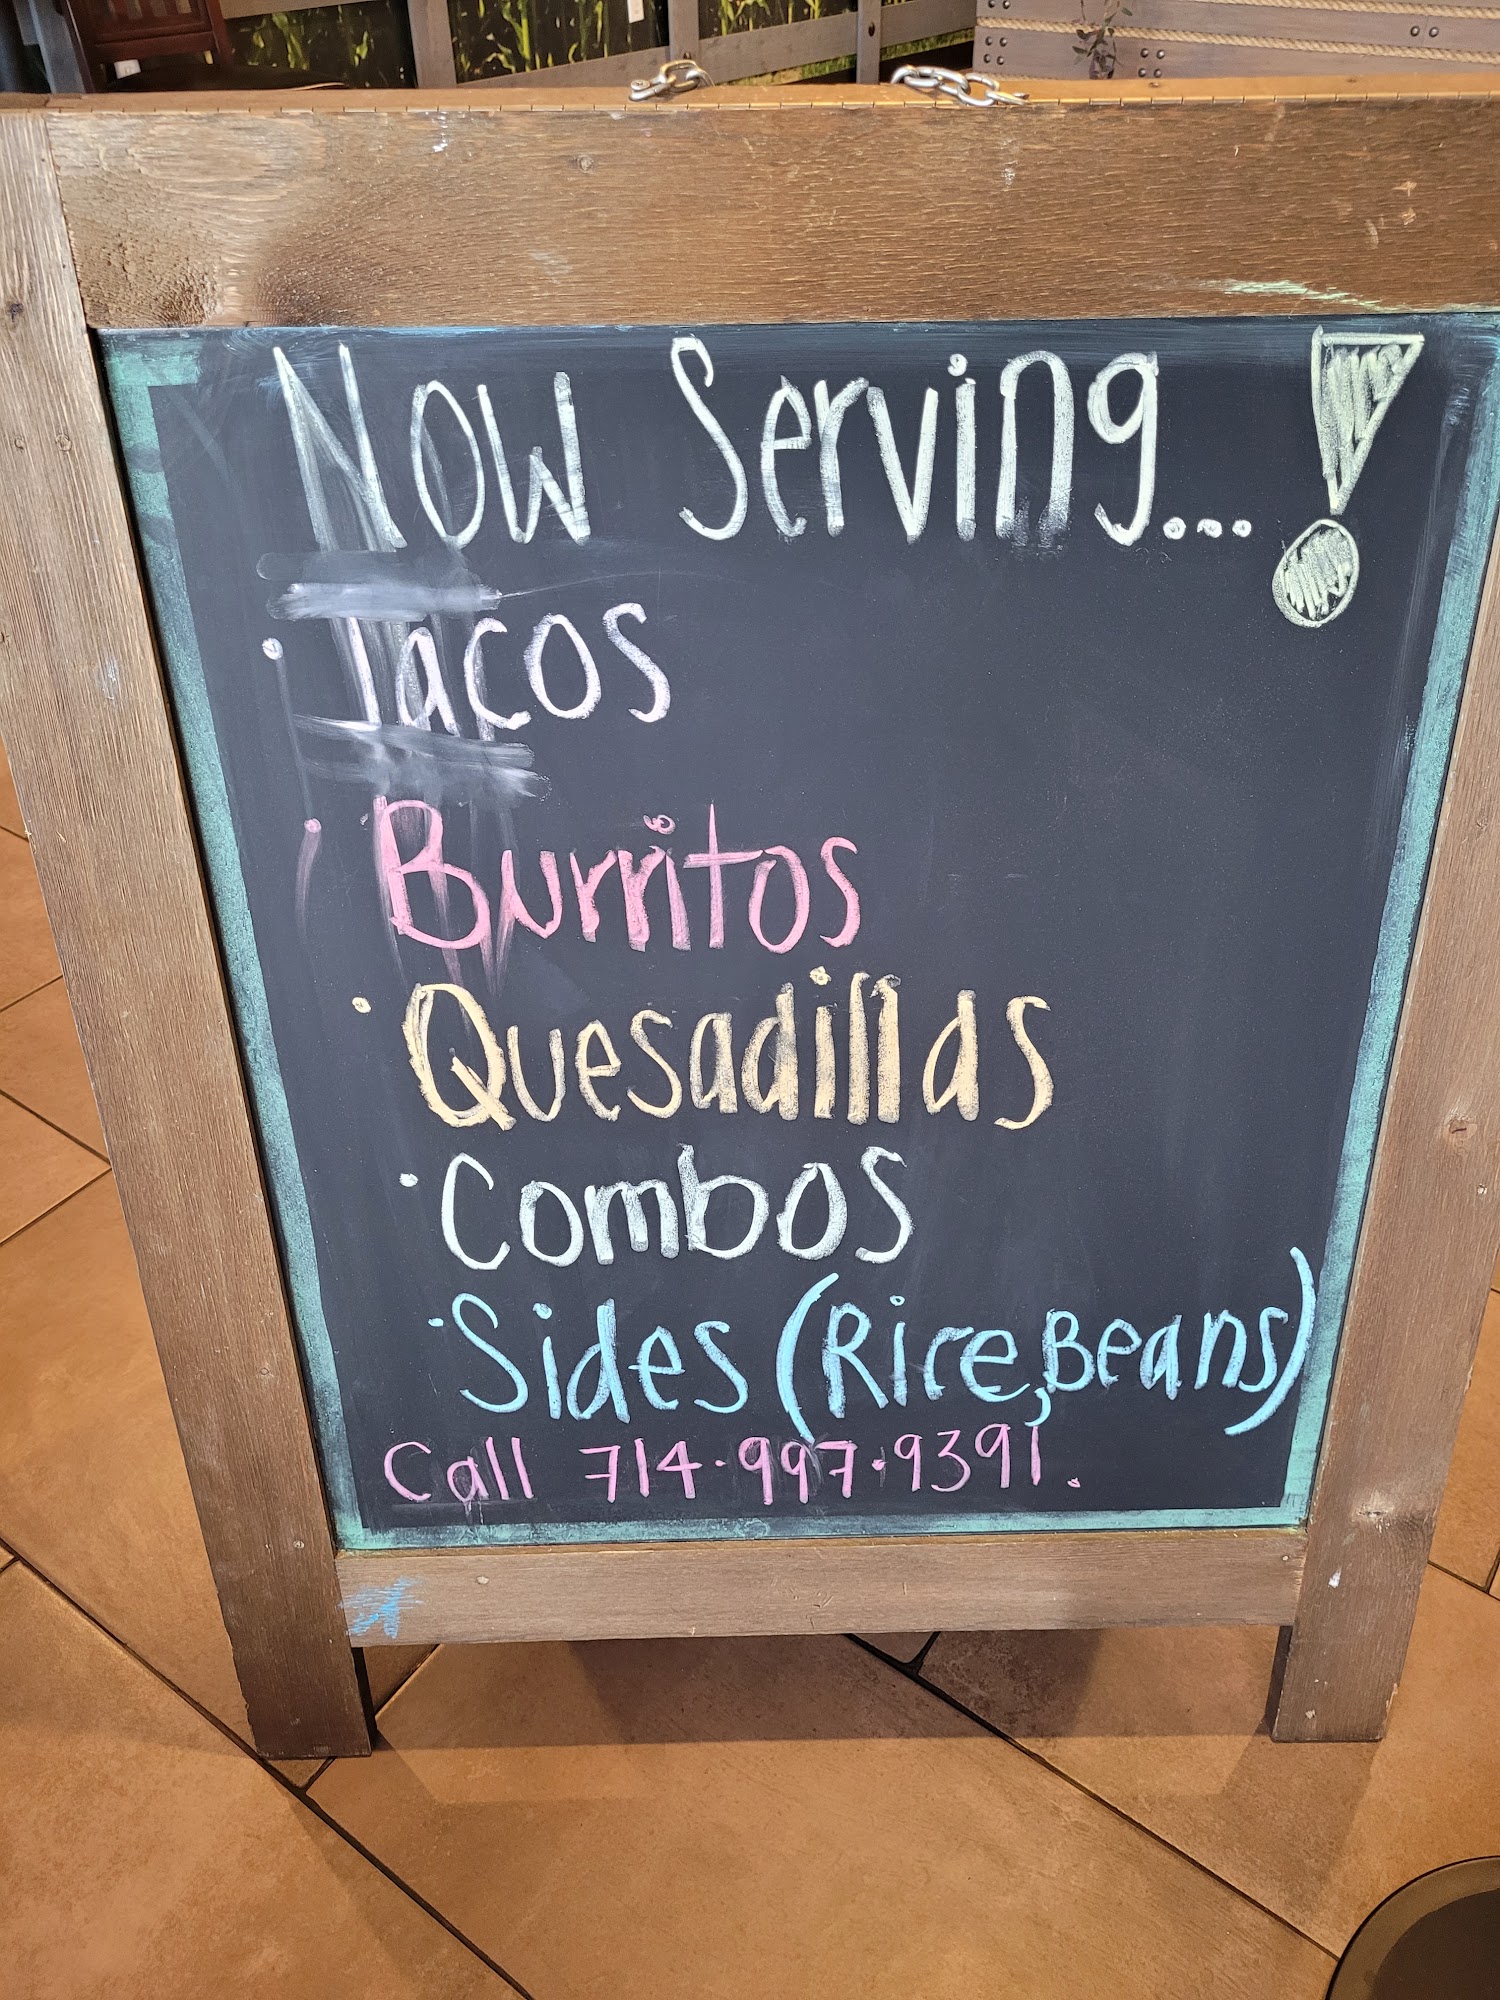 Now Serving...!
· Tacos
· Burritos
· Quesadillas
· Combos
· Sides (Rice, Beans)
Call 714·997·9391.